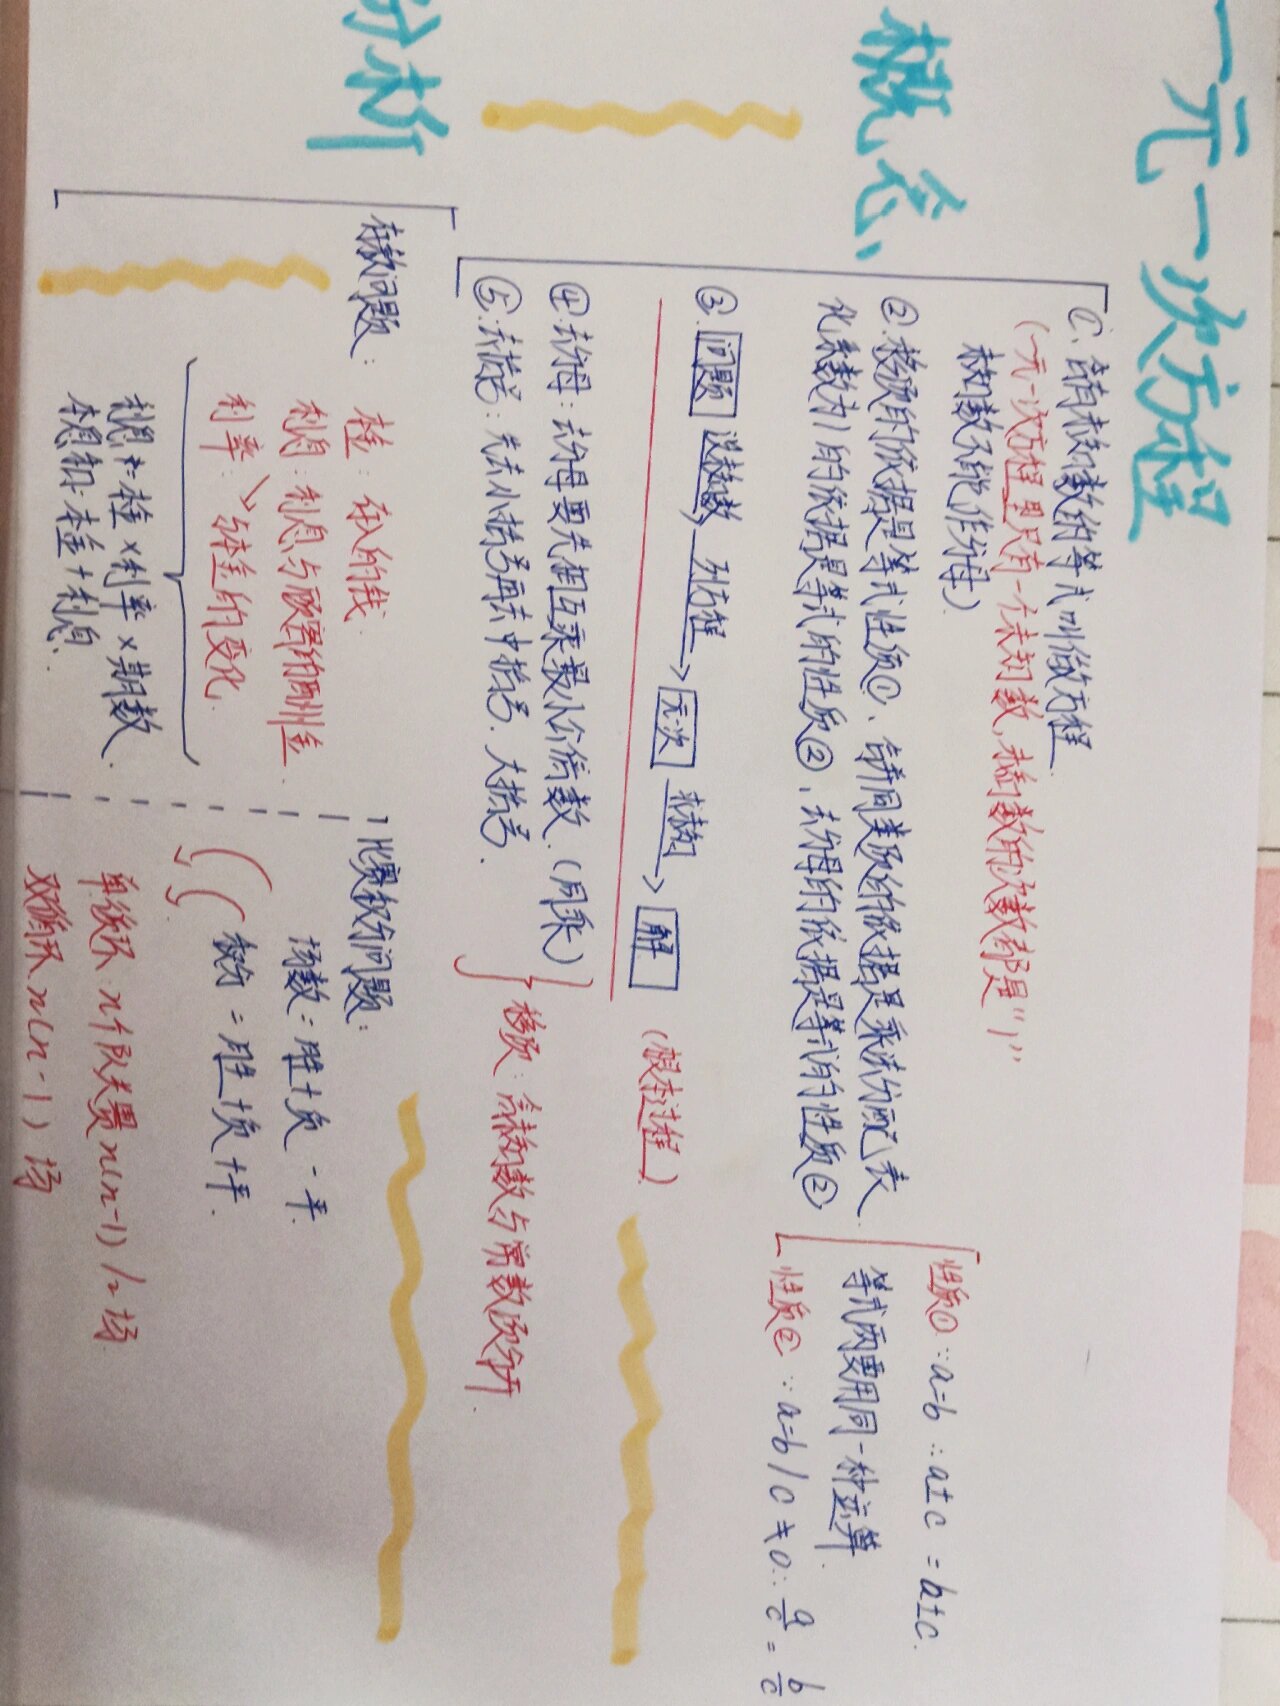 一元一次方程
概念
①、含有未知数的等式叫做方程
(一元一次方程里只有一个未知数,未知数的次数都是“1”
未知数不能作分母)
②.移项的依据是等式性质①、合并同类项的依据是乘法分配表
化系数为1的依据是等式的性质②、去分母的依据是等式的性质②
性质①:∵a=b ∴a±c=b±c.
等式两要用同一种运算
性质②:∵a=b/c≠0∴a/c=b/c
③.问题 设未知数 列方程 元次 求未知 解 (根本过程)
④:去分母:去分母要先想互乘最小公倍数.(同乘)
⑤:去括号:先去小括号再去中括号.大括号.
移项:含未知数与常数项分开
分析
存款问题:
本金:存入的钱
利息:利息与顾客的酬金.
利率:与本金的变化
利息=本金×利率×期数.
本息和:本金+利息.
比赛积分问题:
场数=胜+负-平.
积分=胜+负+平.
单循环 n个队共賽n(n-1)/2场
双循环 n(n-1)场